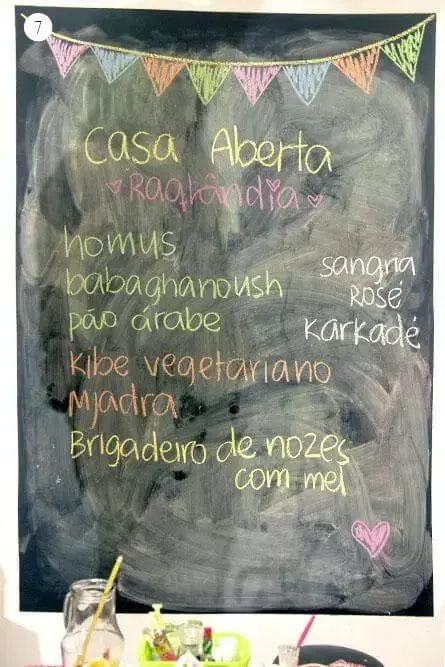 7
Casa Aberta
Raglândia
homus
babaghanoush
pão árabe
kibe vegetariano
Mjadra
Brigadeiro de nozes
com mel
sangria
Rosé
Karkadé